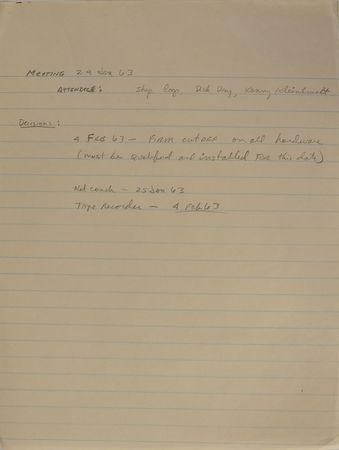 MEETING 24 Jan 63
ATTENDEES: Shep, Dick Day, Kenny Kleinknecht
Decisions:
4 FEB 63 — Firm cutoff on all hardware
(must be qualified and installed FOR this date)
Net couch — 25 Jan 63
Tape Recorder — 4 Feb 63